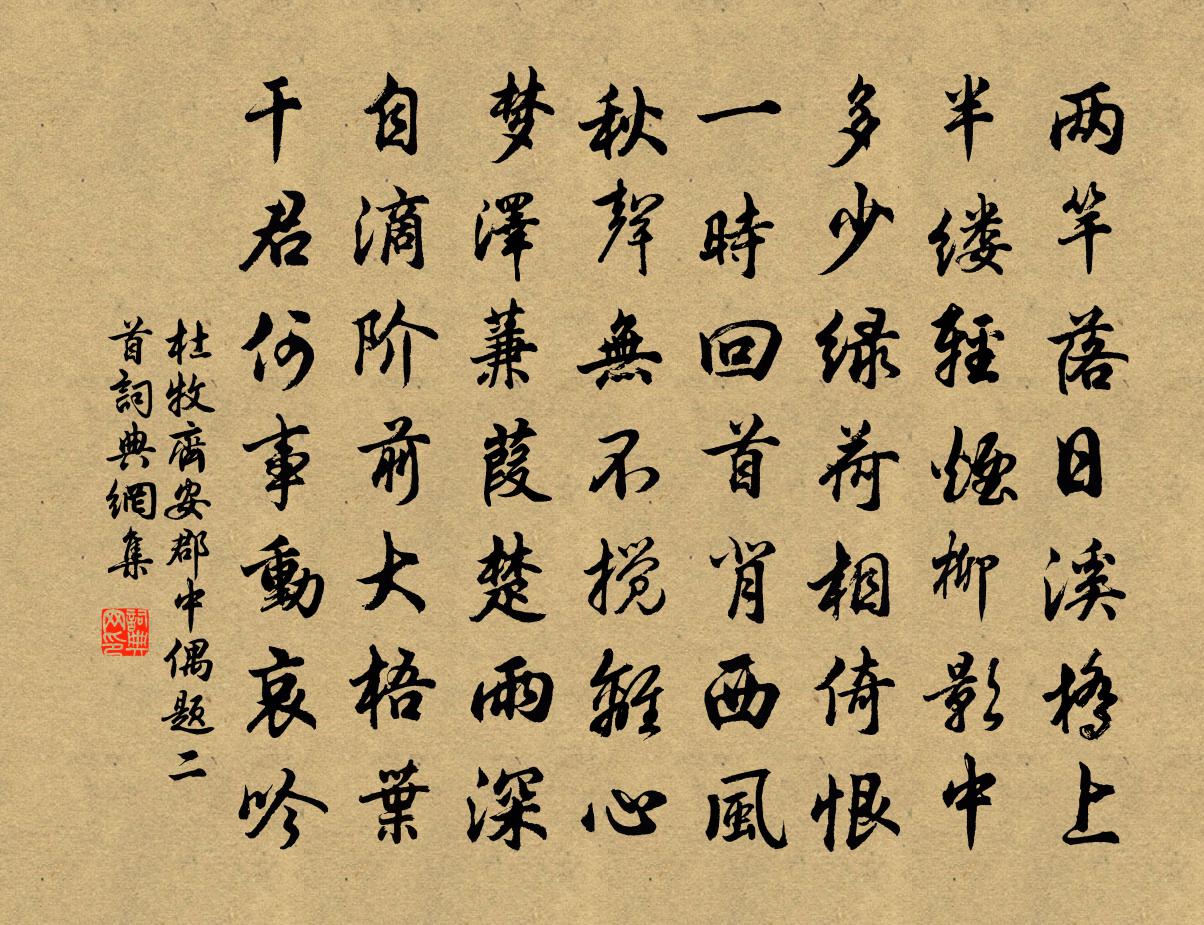 两竿落日溪橋上
半缕輕煙柳影中
多少绿荷相倚恨
一時回首背西風
秋聲無不搅離心
梦澤蒹葭楚雨深
自滴阶前大梧葉
干君何事動哀吟
杜牧齊安郡中偶题二
首詞典網集
詞典
网印